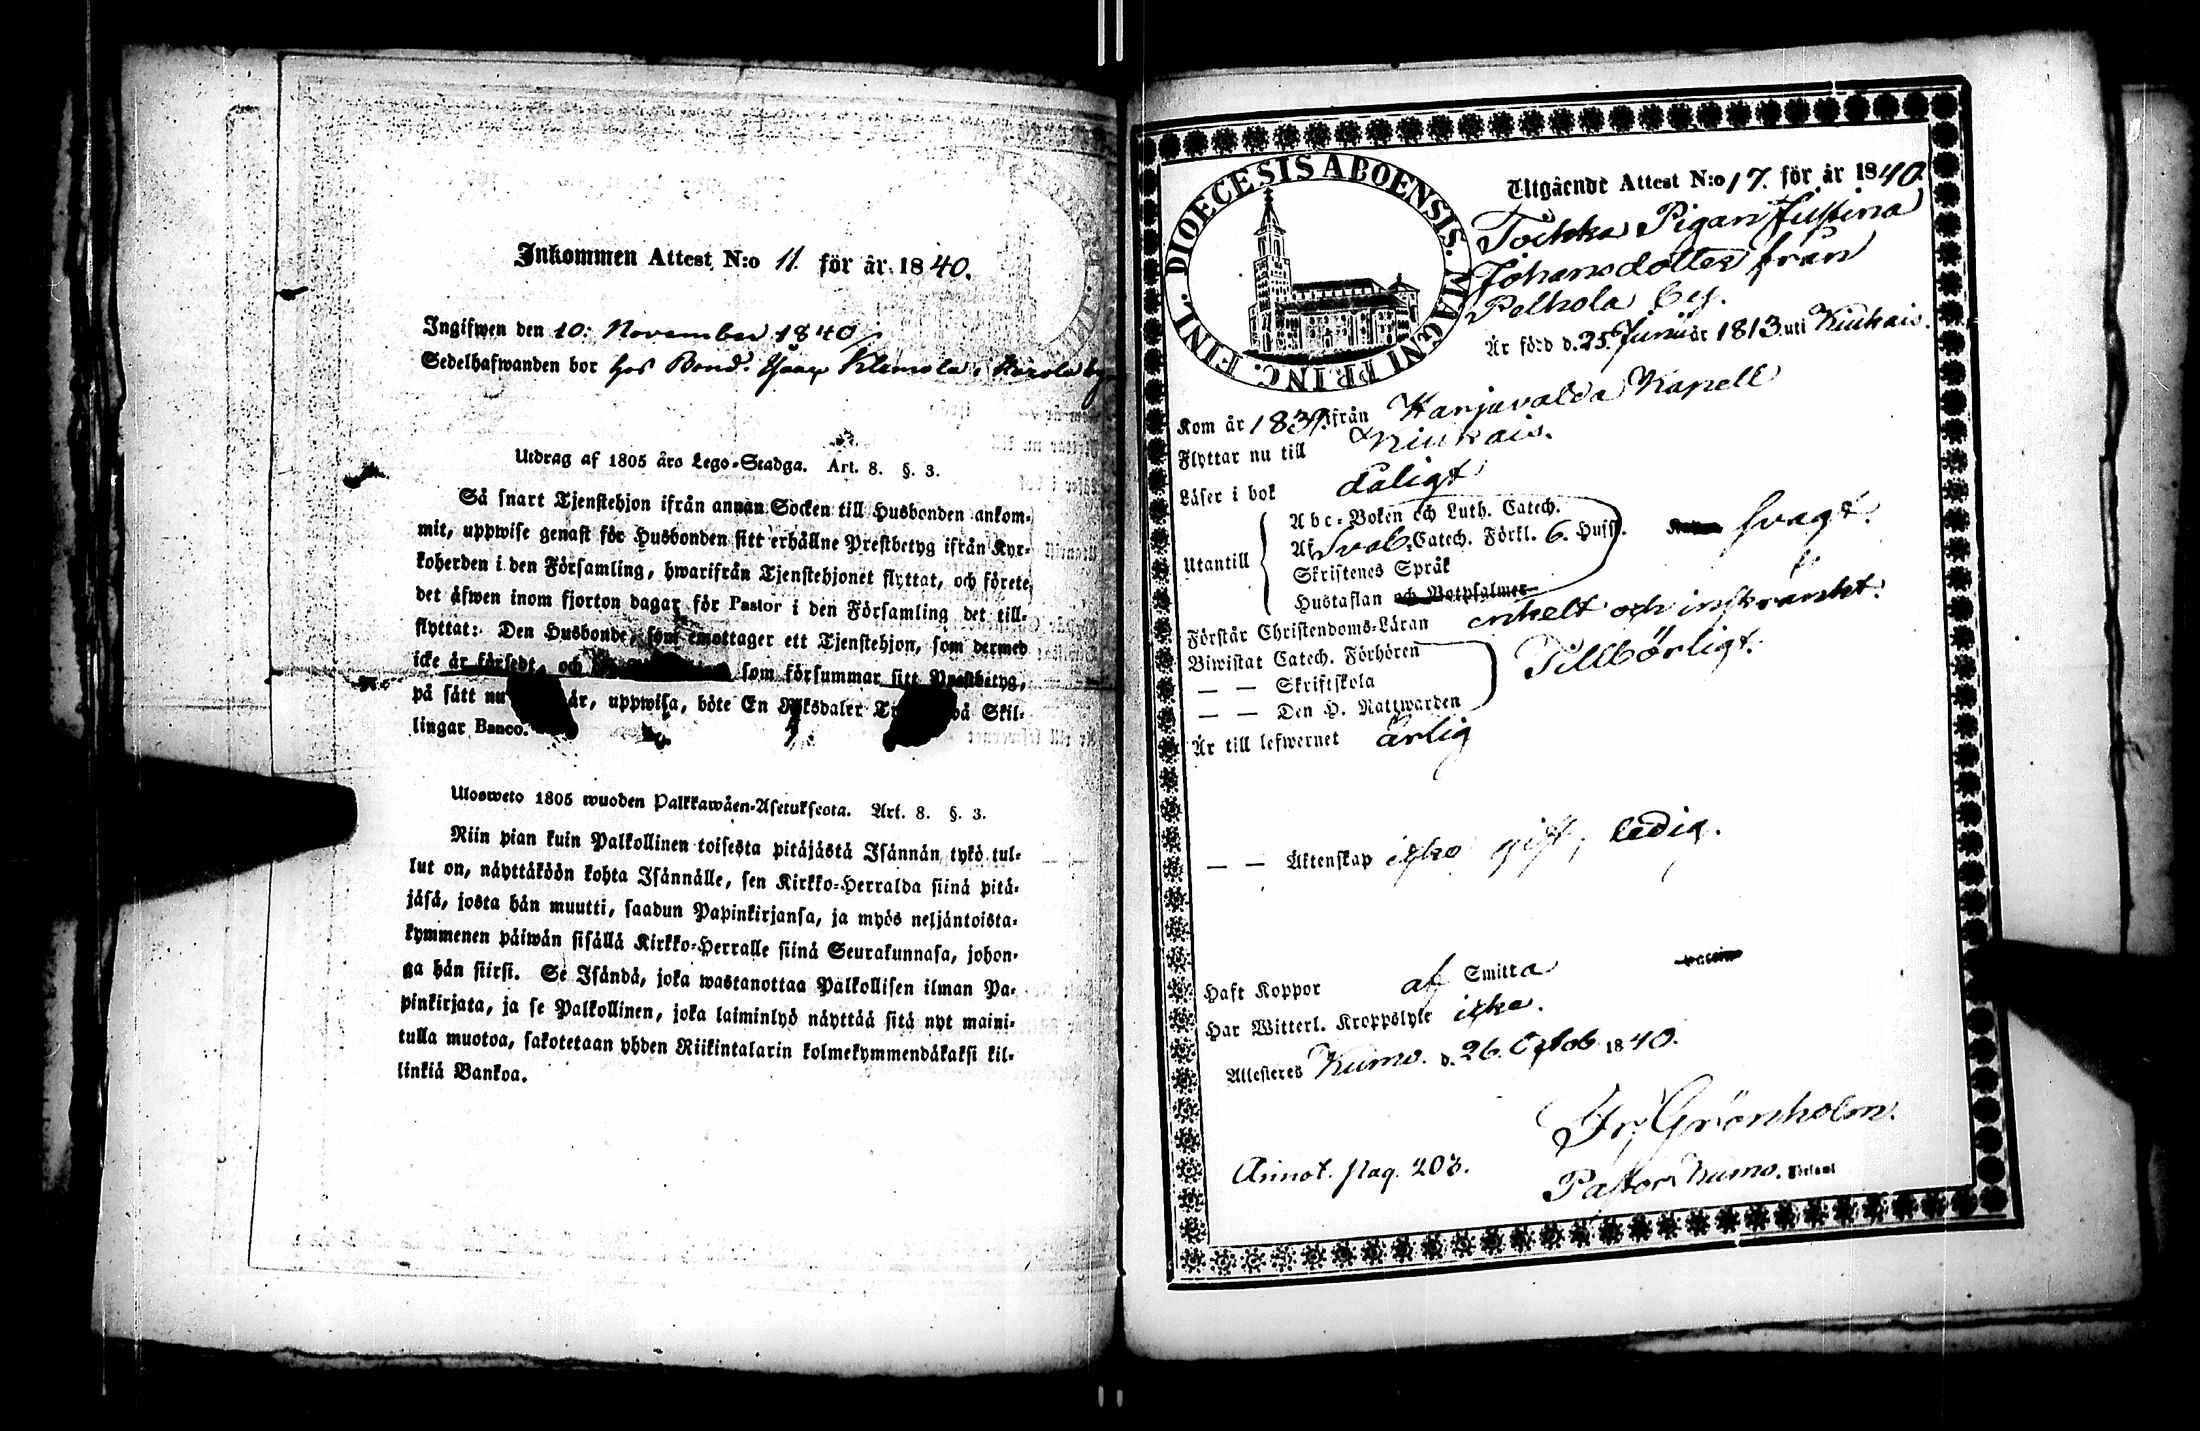 Inkommen Attest N:o 11. för år 1840.
Ingifwen den 10: November 1840
Sedelhafwanden bor hos Bond. Isaac Klemola i Harola by
Utdrag af 1805 års Lego-Stadga. Art. 8. §. 3.
Så snart Tjenstehjon ifrån annan Socken till Husbonden ankom-
mit, uppwise genast för Husbonden sitt erhållne Prestbetyg ifrån Kyr-
koherden i den Församling, hwarifrån Tjenstehjonet flyttat, och förete
det äfwen inom fjorton dagar för Pastor i den Församling det till-
flyttat: Den Husbonde, som emottager ett Tjenstehjon, som dermed
icke är försedt, och som försummar sitt Prestbetyg,
på sätt nu är, uppwisa, böte En Riksdaler Skil-
lingar Banco.
Ulosweto 1805 wuoden Palkkawäen-Asetuksesta. Art. 8. §. 3.
Niin pian kuin Palkollinen toisesta pitäjästä Isännän tykö tul-
lut on, näyttäköön kohta Isännälle, sen Kirkko-Herralda siinä pitä-
jäsä, josta hän muutti, saadun Papinkirjansa, ja myös neljäntoista-
kymmenen päiwän sisällä Kirkko-Herralle siinä Seurakunnasa, johon-
ga hän siirsi. Se Isändä, joka wastanottaa Palkollisen ilman Pa-
pinkirjata, ja se Palkollinen, joka laiminlyö näyttää sitä nyt maini-
tulla muotoa, sakotetaan yhden Riikintalarin kolmekymmendäkaksi kil-
linkiä Bankoa.
DIOECESIS ABOENSIS. MAGNI PRINC. FINL.
Utgående Attest N:o 17. för år 1840.
Toikka Pigan Justina
Johansdotter från
Pelhola by.
Är född d. 25. Junii år 1813 uti Kiukais.
Kom år 1839 ifrån Harjavalda Kapell
Flyttar nu till Kiukais.
Läser i bok dåligt
Utantill
Abc-Boken och Luth. Catech.
Af Sveb. Catech. Förkl. 6. Hufs. svagt.
Skriftenes Språk
Hustaflan och Botpsalmer
Förstår Christendoms-Läran enkelt och inskränkt.
Biwistat Catech. Förhören Tillbörligt.
— — Skriftskola
— — Den H. Nattwarden
Är till lefwernet ärlig
— — Äktenskap icke gift, ledig.
Haft Koppor af Smitta
Har Witterl. Kroppslyte icke.
Attesteres Kumo. d. 26. Octob. 1840.
Fr. Grönholm.
Annot. pag. 203.
Pastor Kumo. Församl